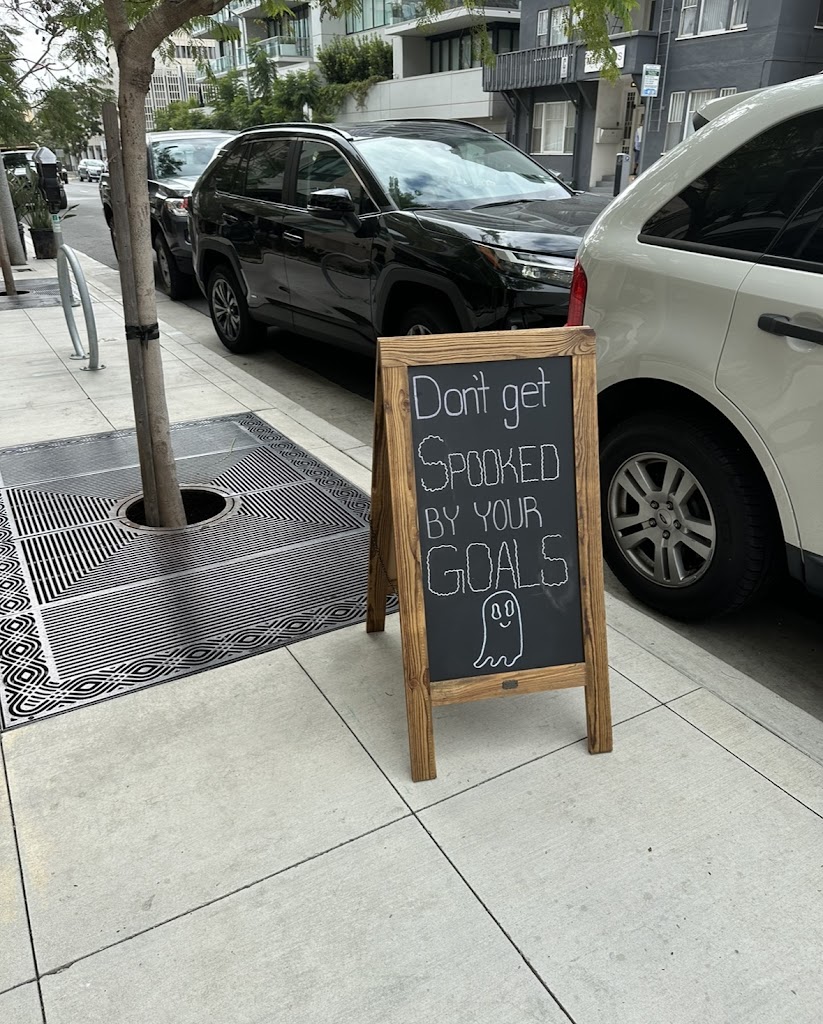 Don't get
SPOOKED
BY YOUR
GOALS